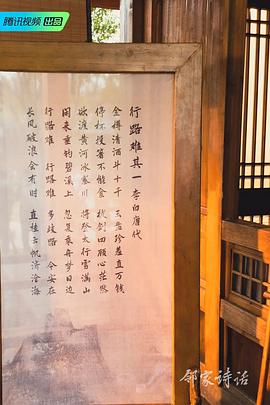 腾讯视频 出品
行路难其一 李白唐代
金樽清酒斗十千 玉盘珍羞直万钱
停杯投箸不能食 拔剑四顾心茫然
欲渡黄河冰塞川 将登太行雪满山
闲来垂钓碧溪上 忽复乘舟梦日边
行路难 行路难 多歧路 今安在
长风破浪会有时 直挂云帆济沧海
邻家诗话